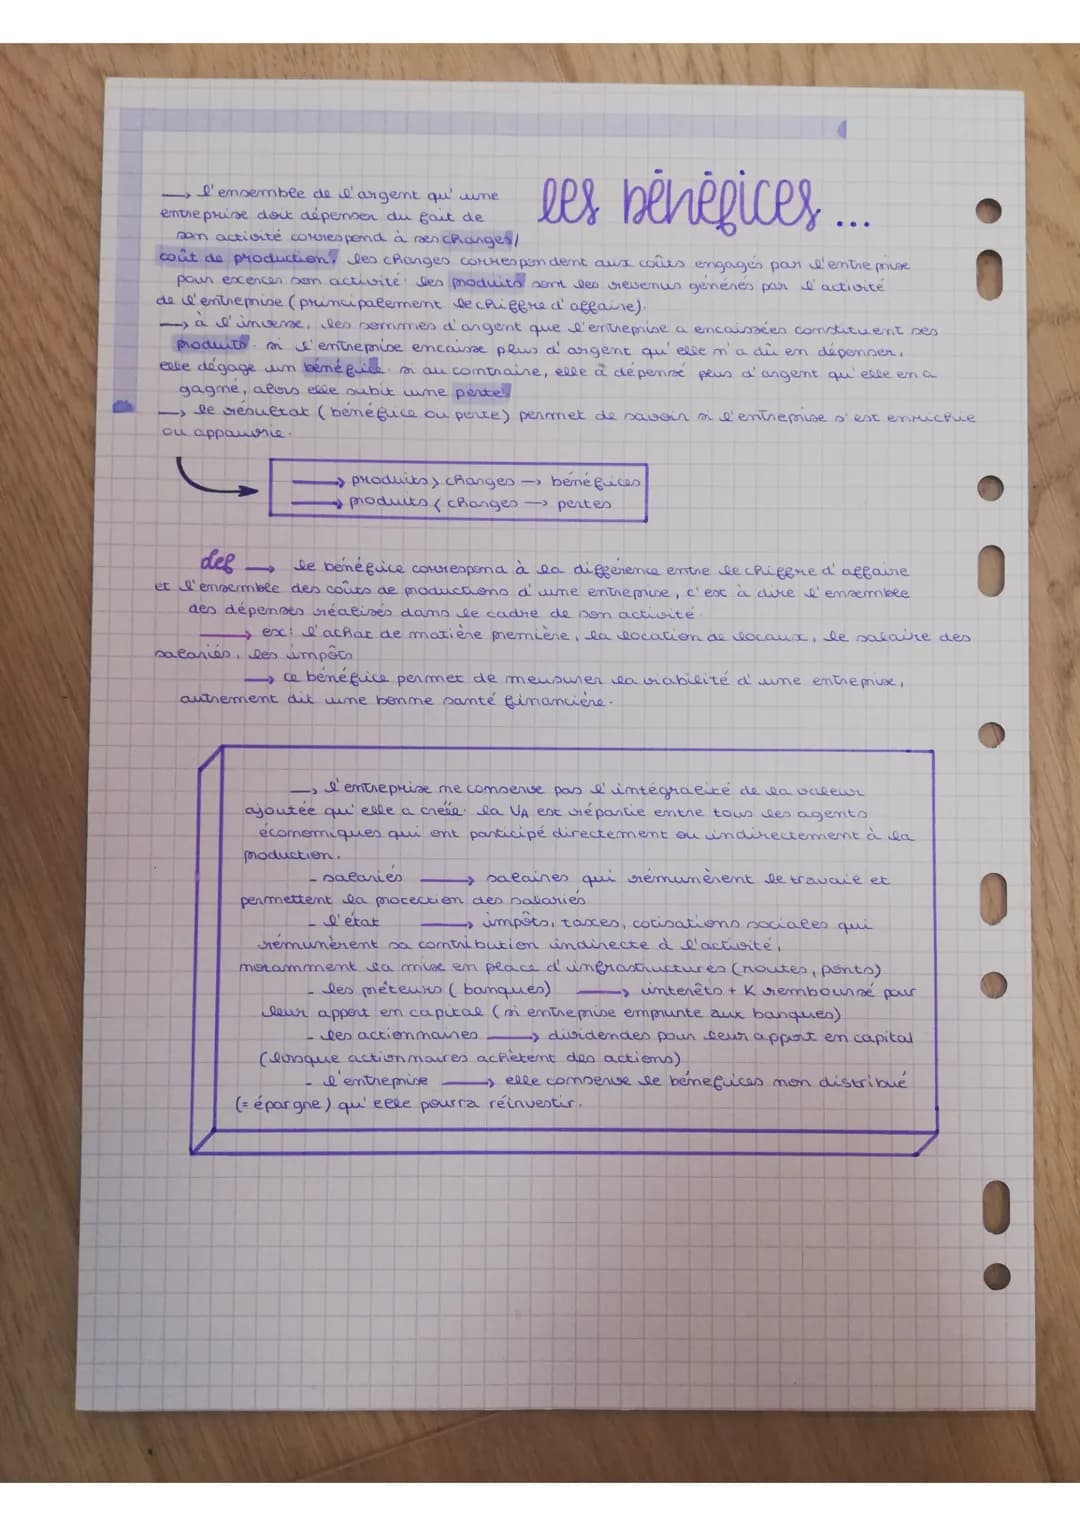 les bénéfices...
→ l'ensemble de l'argent qu'une
entreprise doit dépenser du fait de
son activité correspond à ses charges/
coût de production. les charges correspondent aux coûts engagés par l'entreprise
pour excences son activité. les produits sont les revenus générés par l'activité
de l'entreprise (principalement le chiffre d'affaire).
→ à l'inverse, les sommes d'argent que l'entreprise a encaissées constituent ses
produits. si l'entreprise encaisse plus d'argent qu'elle n'a dû en dépenser,
elle dégage un bénéfice. si au contraire, elle a dépensé plus d'argent qu'elle en a
gagné, alors elle subit une perte.
→ le résultat (bénéfice ou perte) permet de savoir si l'entreprise s'est enrichie
ou appauvrie.
→ produits > charges → bénéfices
→ produits < charges → pertes
def → le bénéfice correspond à la différence entre le chiffre d'affaire
et l'ensemble des coûts de productions d'une entreprise, c'est à dire l'ensemble
des dépenses réalisés dans le cadre de son activité
→ ex: l'achat de matière première, la location de locaux, le salaire des
salariés, les impôts
→ ce bénéfice permet de mesurer la viabilité d'une entreprise,
autrement dit une bonne santé financière.
→ l'entreprise ne conserve pas l'intégralité de la valeur
ajoutée qu'elle a créée. la VA est répartie entre tous les agents
économiques qui ont participé directement ou indirectement à la
production.
- salariés → salaires qui rémunèrent le travail et
permettent la protection des salariés
- l'état → impôts, taxes, cotisations sociales qui
rémunèrent sa contribution indirecte à l'activité,
notamment la mise en place d'infrastructures (routes, ponts)
- les prêteurs (banques) → interêts + K remboursé pour
leur apport en capital (si entreprise emprunte aux banques)
- les actionnaires → dividendes pour leur apport en capital
(lorsque actionnaires achètent des actions)
- l'entreprise → elle conserve le bénéfices non distribué
(= épargne) qu'elle pourra réinvestir.